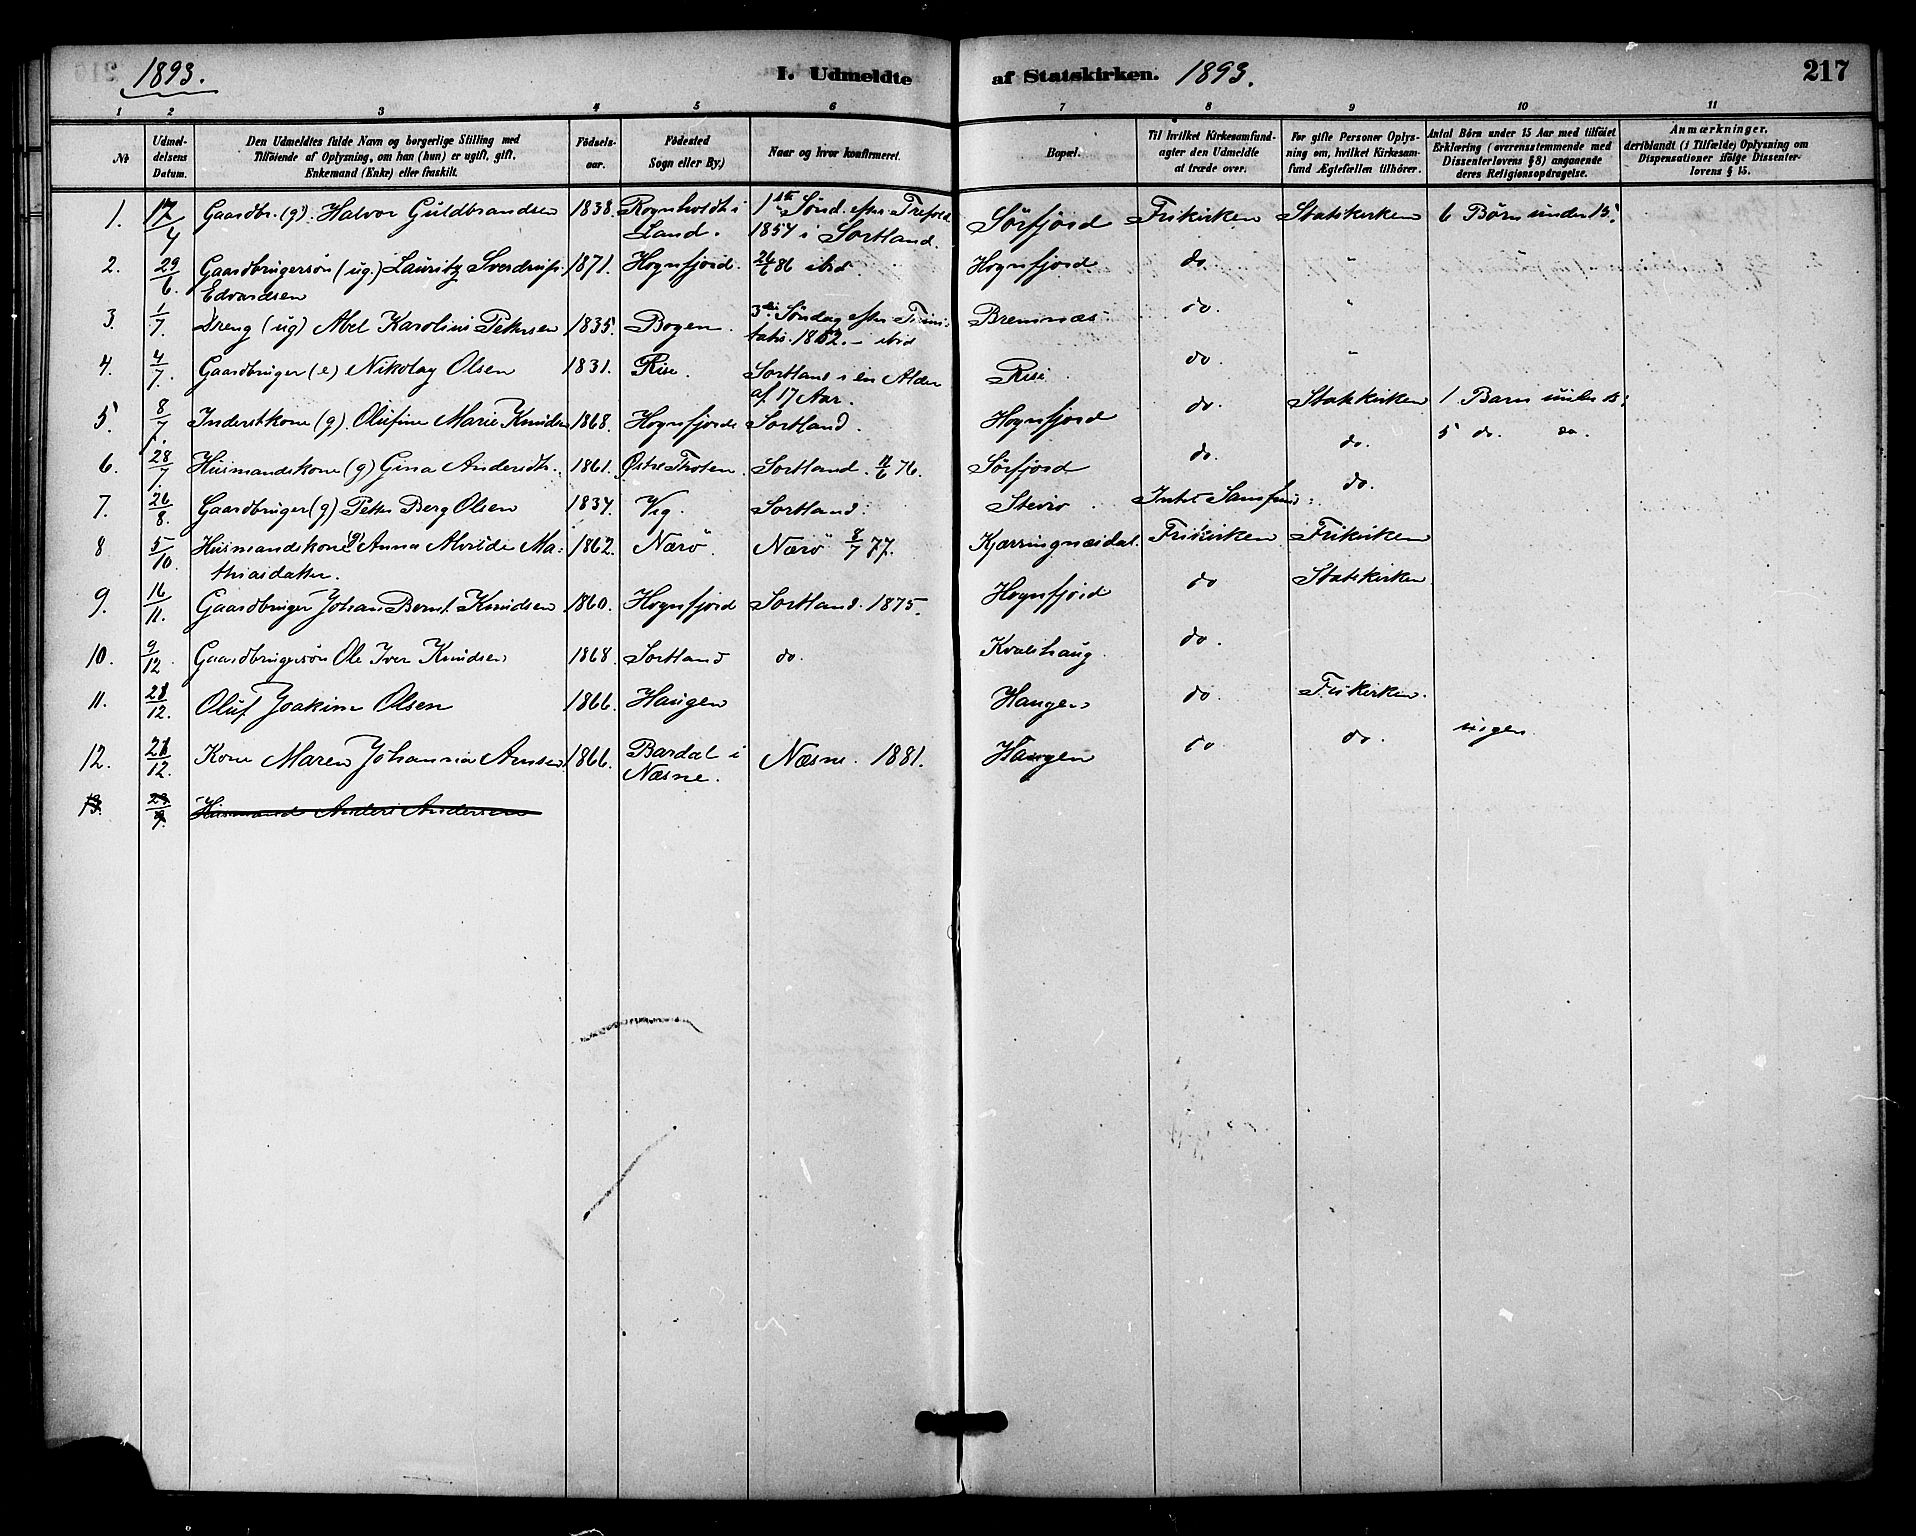 1893.
I. Udmeldte af Statskirken.
1893.
217
1 2 3 4 5 6 7 8 9 10 11
No
Udmel-
delsens
Datum.
Den Udmeldtes fulde Navn og borgerlige Stilling med
Tilføiende af Oplysning, om han (hun) er ugift, gift,
Enkemand (Enke) eller fraskilt.
Födsels-
aar.
Födested
Sogn eller By.)
Naar og hvor konfirmeret.
Bopæl.
Til hvilket Kirkesamfund-
agter den Udmeldte
at træde over.
For gifte Personer Oplys-
ning om, hvilket Kirkesam-
fund Ægtefællen tilhører.
Antal Børn under 15 Aar med tilföiet
Erklæring (overensstemmende med
Dissenterlovens § 8) angaaende
deres Religionsopdragelse.
Anmærkninger,
deriblandt (i Tilfælde) Oplysning om
Dispensationer ifölge Dissenter-
lovens § 15.
1. 17/4 Gaardbr. (g). Halvor Guldbrandsen 1838. Rognholdt i 1ste Sönd. efter Trefold. Sörfjord Frikirken Statskirken 6 Børn under 15.
Land. 1854 i Sortland.
2. 29/6 Gaardbrugersøn (ug.) Lauritz Sverdrup 1871. Hognfjord. 26/6 86 ibid. Hognfjord do "
Edvardsen
3. 1/7. Dreng (ug) Abel Karolius Petersen 1835. Bogen. 3die Söndag efter Trini- Bremnæs do "
tatis. 1852. - ibid
4. 4/7. Gaardbruger (e) Nikolay Olsen 1831. Rise. Sortland i en Alder Rise do "
af 17 Aar.
5. 8/7. Inderstkone (g). Olufine Marie Knudsen 1868. Hognfjord Sortland. Hognfjord do. Statskirken 1 Barn under 15.
6. 28/7. Husmandskone (g) Gina Andersdtr. 1861. Østre Thoten. Sortland. 11/6 76. Sörfjord do. do. 5 do. do.
7. 26/8. Gaardbruger (g) Petter Berg Olsen 1834. Vig. Sortland. Steiro. Intet Samfund. do.
8 5/10. Husmandskone (g) Anna Alvide Ma- 1862. Nærö. Nærö 8/7 77. Kjærringnæsdal. Frikirken Frikirken
thiasdatter.
9. 16/11. Gaardbruger Johan Bernt. Knudsen 1860. Hognfjord Sortland. 1875. Hognfjord do Statskirken
10. 9/12. Gaardbrugersøn Ole Iver Knudsen 1868. Sortland do. Kvalshaug do.
11. 21/12. Oluf Joakim Olsen 1866. Haugen Haugen do. Frikirken.
12. 21/12. Kone Maren Johanna Arnsen 1866. Bardal i Næsne. 1881. Haugen do do. ingen
Næsne.
13. 29/9. Husmand Anders Andersen